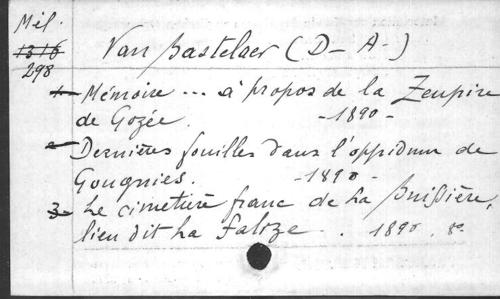 Mél.
1316
298
Van Bastelaer (D-A-)
1- Mémoire ... à propos de la Zeupire
de Gozée. -1890-
2- Dernières fouilles dans l'oppidum de
Gougnies. -1890-
3- Le cimetière franc de La Buissière,
lieu dit La Falize. . 1890. 8o